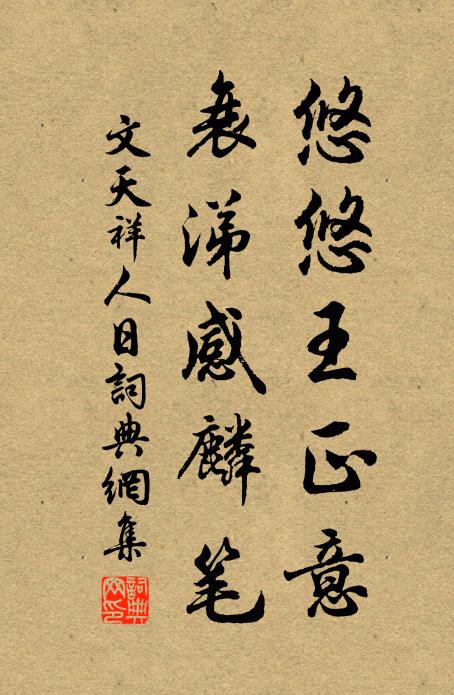 悠悠王正意
衰涕感麟笔
文天祥人日詞典網集
詞典网印